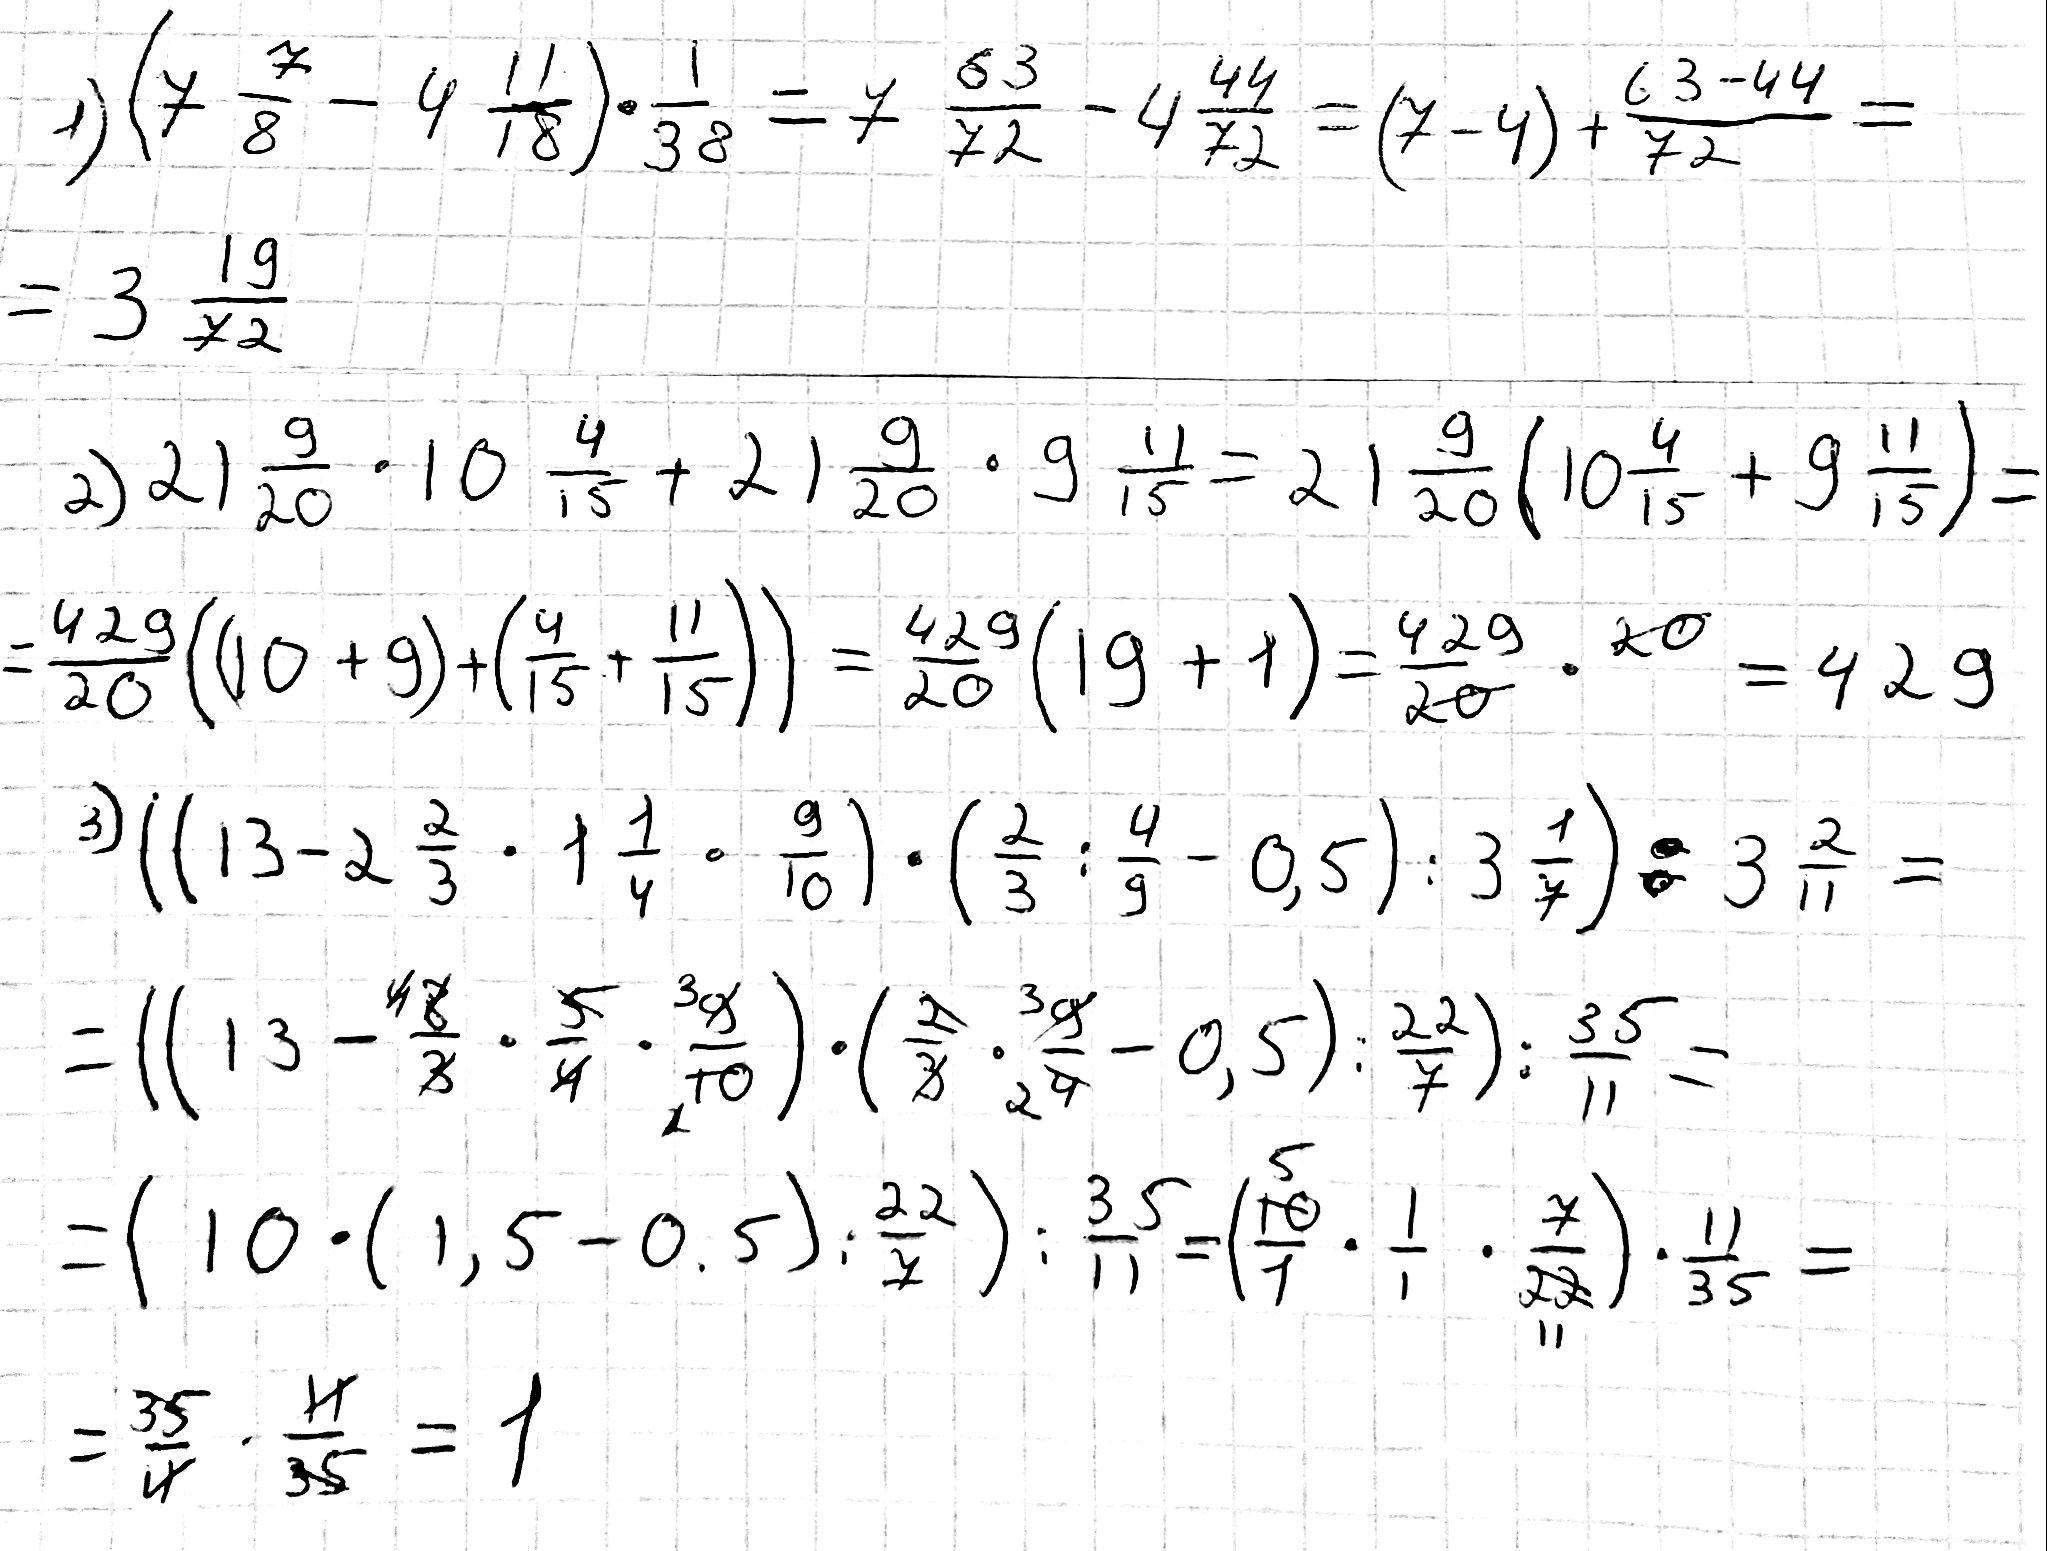 1) (7 7/8 − 4 11/18) · 1/38 = 7 63/72 − 4 44/72 = (7 − 4) + (63 − 44)/72 =
= 3 19/72
2) 21 9/20 · 10 4/15 + 21 9/20 · 9 11/15 = 21 9/20 (10 4/15 + 9 11/15) =
= 429/20 ((10 + 9) + (4/15 + 11/15)) = 429/20 (19 + 1) = 429/20 · 20 = 429
3) ((13 − 2 2/3 · 1 1/4 · 9/10) · (2/3 : 4/9 − 0,5) : 3 1/7) : 3 2/11 =
= ((13 − 4 8/3 · 5/4 · 3 9/10 1) · (2/3 · 3 9/4 2 − 0,5) : 22/7) : 35/11 =
= (10 · (1,5 − 0.5) : 22/7) : 35/11 = (5 10/1 · 1/1 · 7/22 11) · 11/35 =
= 35/11 · 11/35 = 1